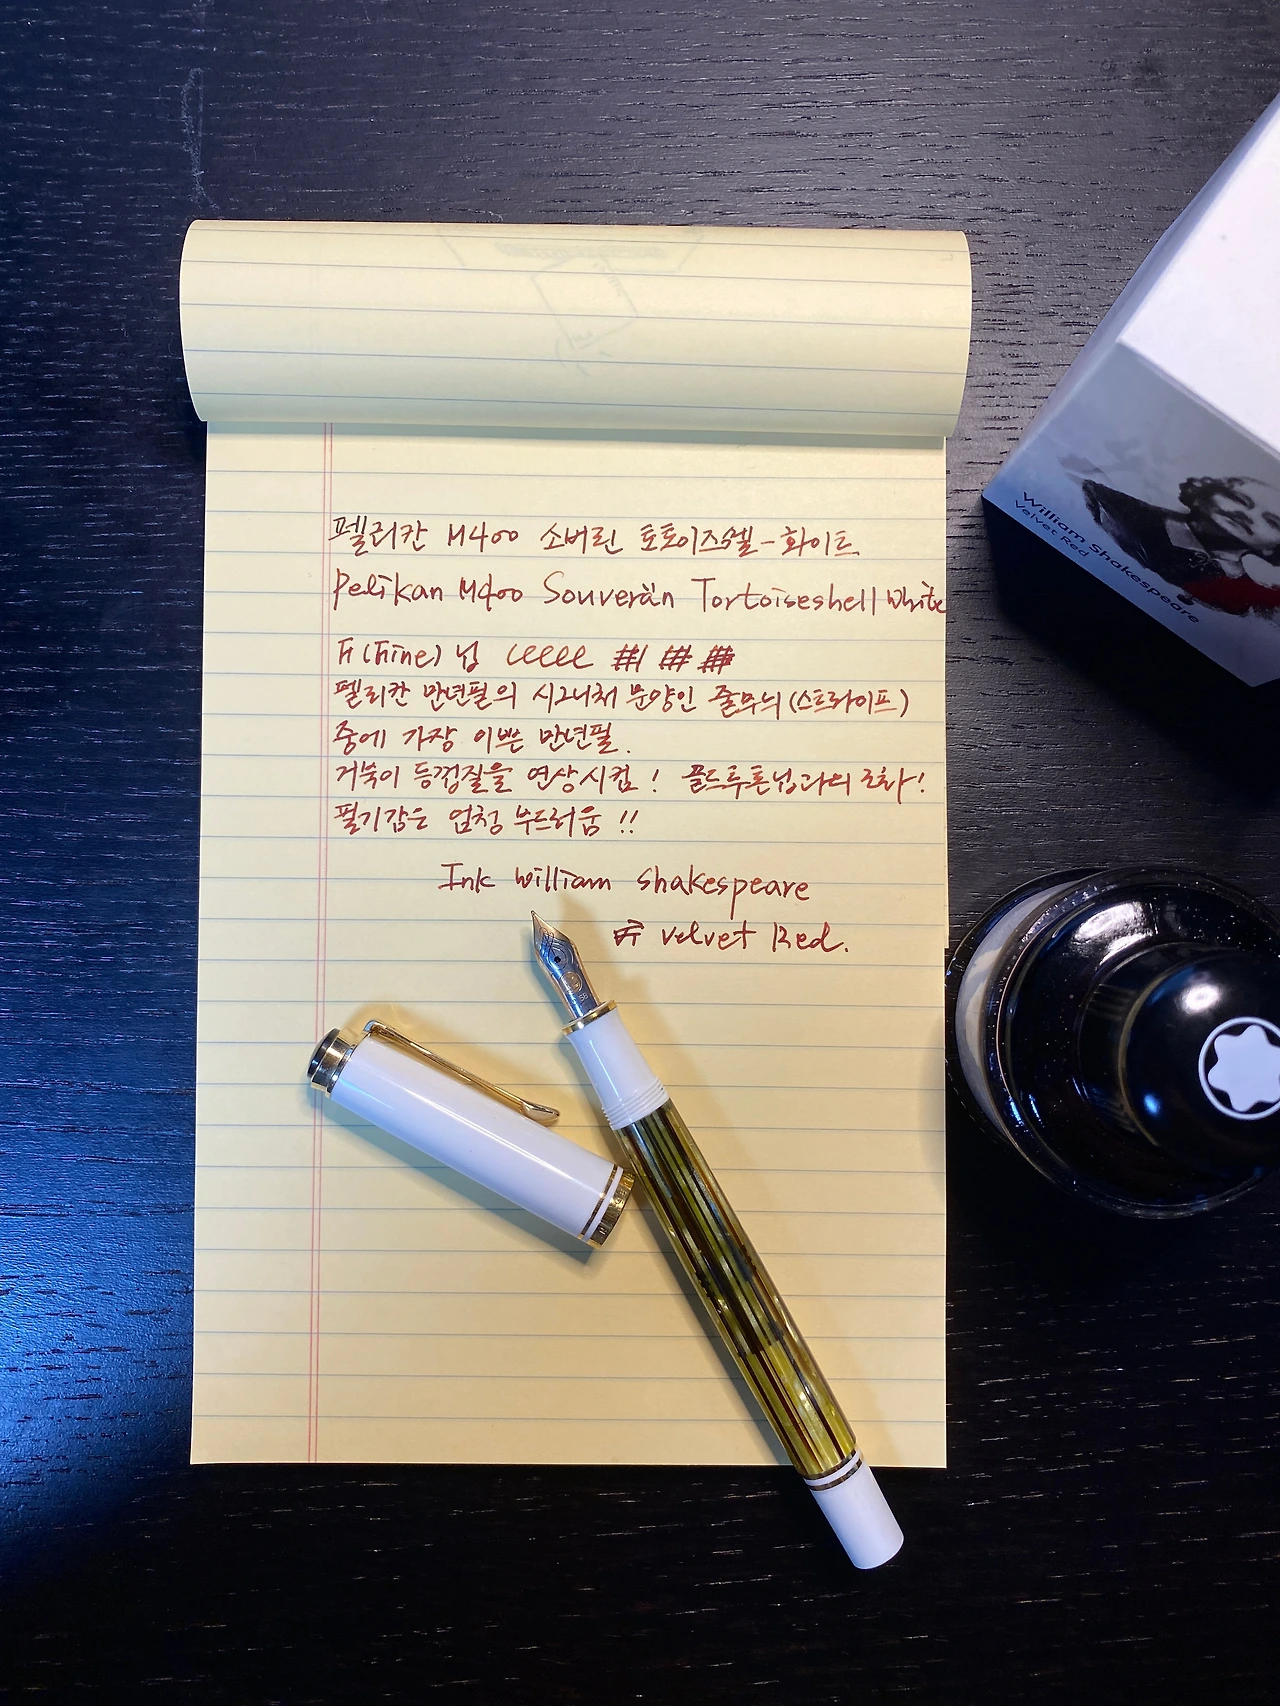 펠리칸 M400 소버린 토토이즈쉘-화이트
Pelikan M400 Souverän Tortoiseshell White
F(Fine) 닙 eeeee ## ## ##
펠리칸 만년필의 시그니처 문양인 줄무늬(스트라이프)
중에 가장 이쁜 만년필.
거북이 등껍질을 연상시킴! 골드투톤닙과의 조화!
필기감은 엄청 부드러움!!
Ink William Shakespeare
# Velvet Red.
William Shakespeare
Velvet Red